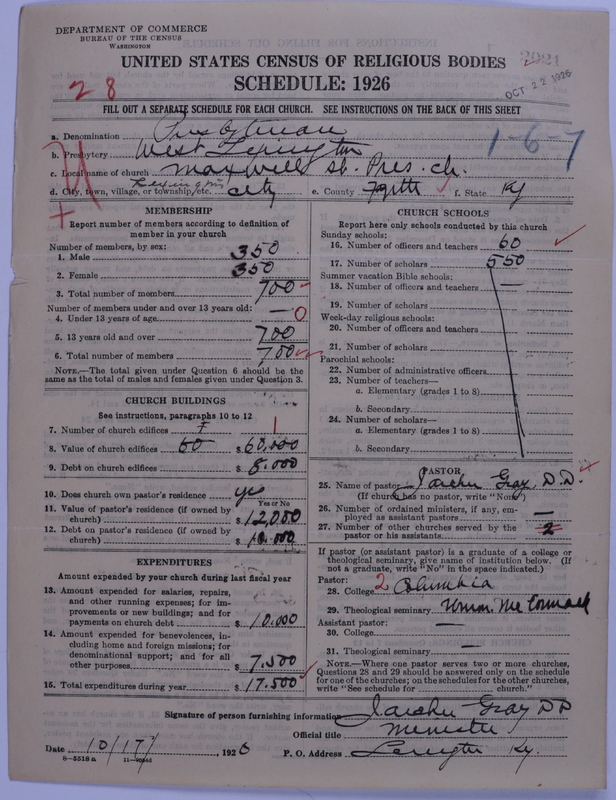 DEPARTMENT OF COMMERCE
BUREAU OF THE CENSUS
WASHINGTON
UNITED STATES CENSUS OF RELIGIOUS BODIES
SCHEDULE: 1926
OCT 22 1926
28
FILL OUT A SEPARATE SCHEDULE FOR EACH CHURCH. SEE INSTRUCTIONS ON THE BACK OF THIS SHEET
1-6-7
a. Denomination Presbyterian
b. Presbytery West Lexington
c. Local name of church Maxwell St. Pres. ch.
d. City, town, village, or township, etc. Lexington City e. County Fayette f. State Ky
MEMBERSHIP
Report number of members according to definition of member in your church
Number of members, by sex:
1. Male 350
2. Female 350
3. Total number of members 700
Number of members under and over 13 years old:
4. Under 13 years of age — 0
5. 13 years old and over 700
6. Total number of members 700
NOTE.—The total given under Question 6 should be same as the total of males and females given under Question 3.
CHURCH BUILDINGS
See instructions, paragraphs 10 to 12
7. Number of church edifices 1
8. Value of church edifices $ 60,000
9. Debt on church edifices $ 8.000
10. Does church own pastor's residence yes
Yes or No
11. Value of pastor's residence (if owned by church) $ 12,000
12. Debt on pastor's residence (if owned by church) $ 10.000
EXPENDITURES
Amount expended by your church during last fiscal year
13. Amount expended for salaries, repairs, and other running expenses; for improvements or new buildings; and for payments on church debt $ 10.000
14. Amount expended for benevolences, including home and foreign missions; for denominational support; and for all other purposes $ 7,500
15. Total expenditures during year $ 17.500
CHURCH SCHOOLS
Report here only schools conducted by this church
Sunday schools:
16. Number of officers and teachers 60
17. Number of scholars 550
Summer vacation Bible schools:
18. Number of officers and teachers —
19. Number of scholars
Week-day religious schools:
20. Number of officers and teachers
21. Number of scholars
Parochial schools:
22. Number of administrative officers
23. Number of teachers—
a. Elementary (grades 1 to 8)
b. Secondary
24. Number of scholars—
a. Elementary (grades 1 to 8)
b. Secondary
PASTOR
25. Name of pastor Gray, D.D.
(If church has no pastor, write "None")
26. Number of ordained ministers, if any, employed as assistant pastors —
27. Number of other churches served by the pastor or his assistants 2
If pastor (or assistant pastor) is a graduate of a college or theological seminary, give name of institution below. (If not a graduate, write "No" in the space indicated.)
Pastor:
28. College 2 Columbia
29. Theological seminary Union. McCormack
Assistant pastor: —
30. College
31. Theological seminary —
NOTE.—Where one pastor serves two or more churches, Questions 28 and 29 should be answered only on the schedule for one of the churches; on the schedules for the other churches, write "See schedule for church."
Signature of person furnishing information Gray DD
Official title Minister
Date 10/17/ 1926 P. O. Address Lexington Ky.
8-5518 a